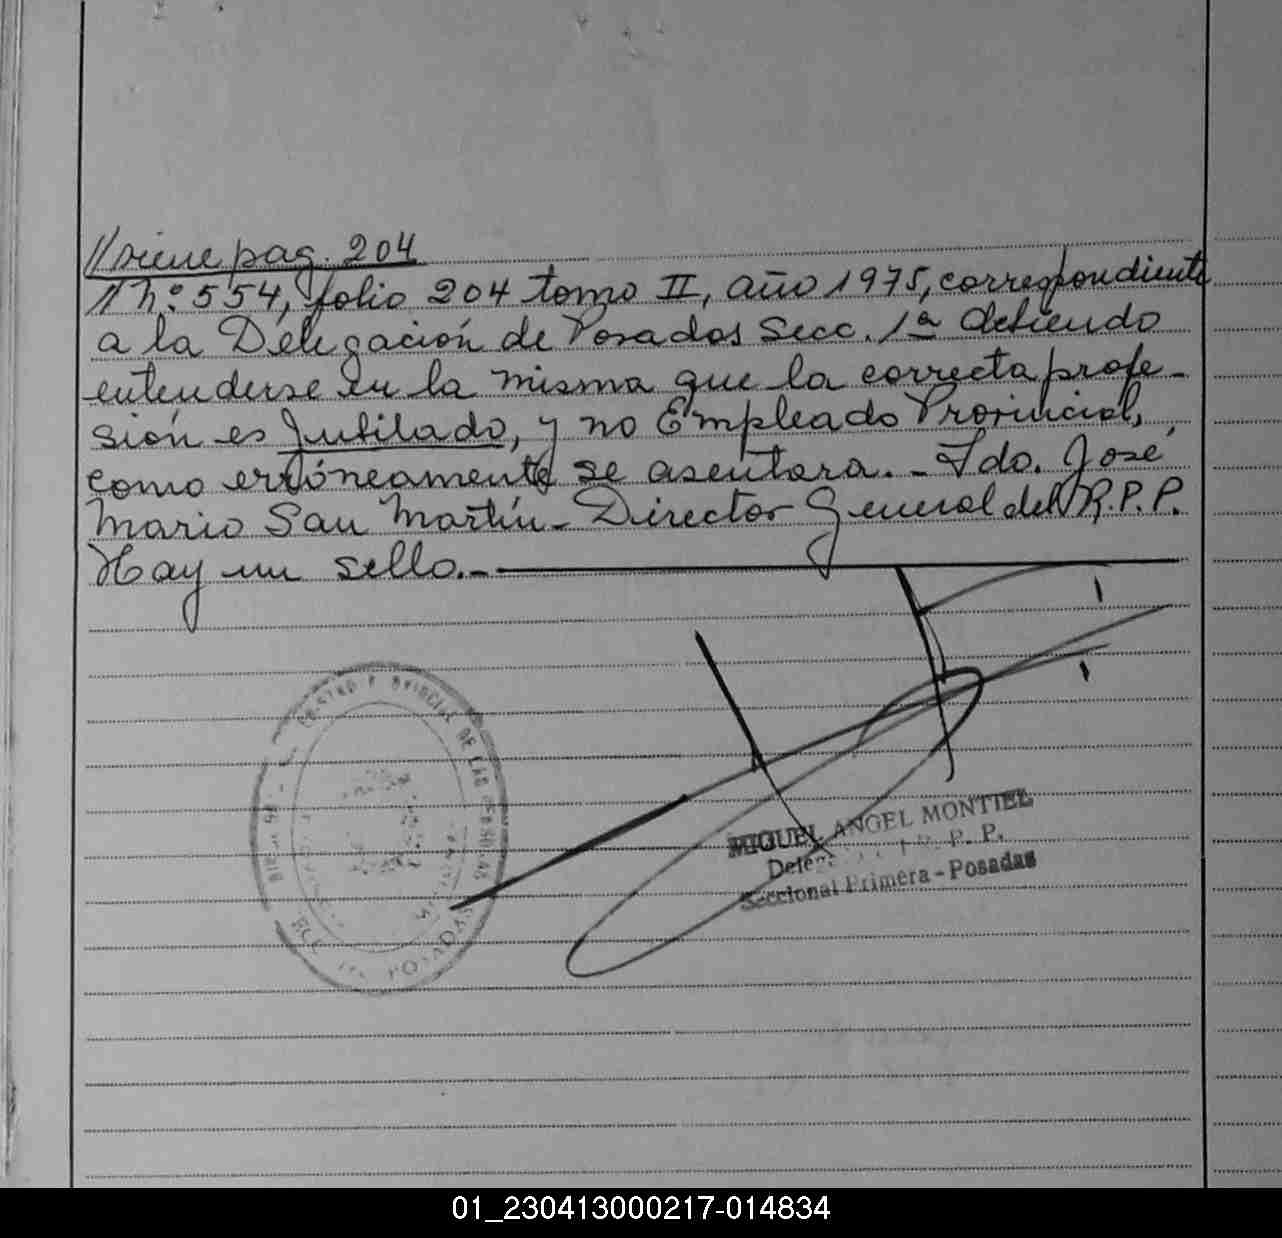 //viene pag. 204
// Nº 554, folio 204 tomo II, año 1975, correspondiente
a la Delegación de Posadas Secc. 1ª debiendo
entenderse en la misma que la correcta profe-
sión es Jubilado, y no Empleado Provincial,
como erróneamente se asentara.- Fdo. José
Mario San Martín - Director General del R.P.P.
Hay un sello.-
DE LAS PERSONAS
POSADAS
MIGUEL ANGEL MONTIEL
R. P. P.
Seccional Primera - Posadas
01_230413000217-014834